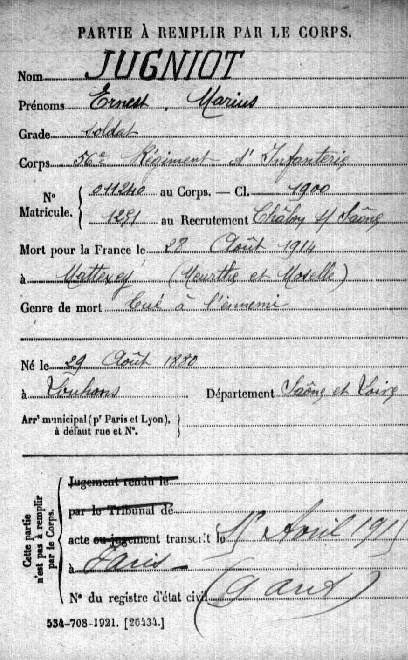 PARTIE À REMPLIR PAR LE CORPS.
Nom JUGNIOT
Prénoms Ernest Marius
Grade soldat
Corps 56e Régiment d'Infanterie
N° Matricule. 011240 au Corps. — Cl. 1900
1291 au Recrutement Châlon s/ Saône
Mort pour la France le 28 Août 1914
à Mattexey (Meurthe et Moselle)
Genre de mort tué à l'ennemi
Né le 29 Août 1880
à Département Saône et Loire
Arrt municipal (pr Paris et Lyon),
à défaut rue et N°.
Cette partie n'est pas à remplir par le Corps.
Jugement rendu le
par le Tribunal de
acte ou jugement transcrit le Avril 1915
à Paris
N° du registre d'état civil (Gard)
534-708-1921. [26434.]